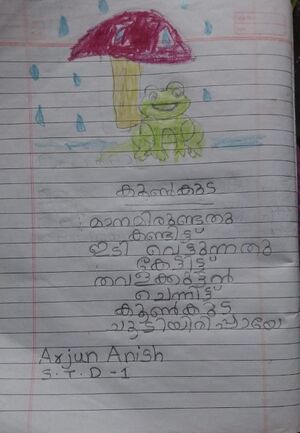 കൂൺകുട
മാനമിരുണ്ടതു
കണ്ടിട്ട്
ഇടി വെട്ടുന്നതു
കേട്ടിട്ട്
തവളക്കുട്ടൻ
ചെന്നിട്ട്
കൂൺകുട
ചൂടിയിരിപ്പായേ
Arjun Anish
S.T.D-1